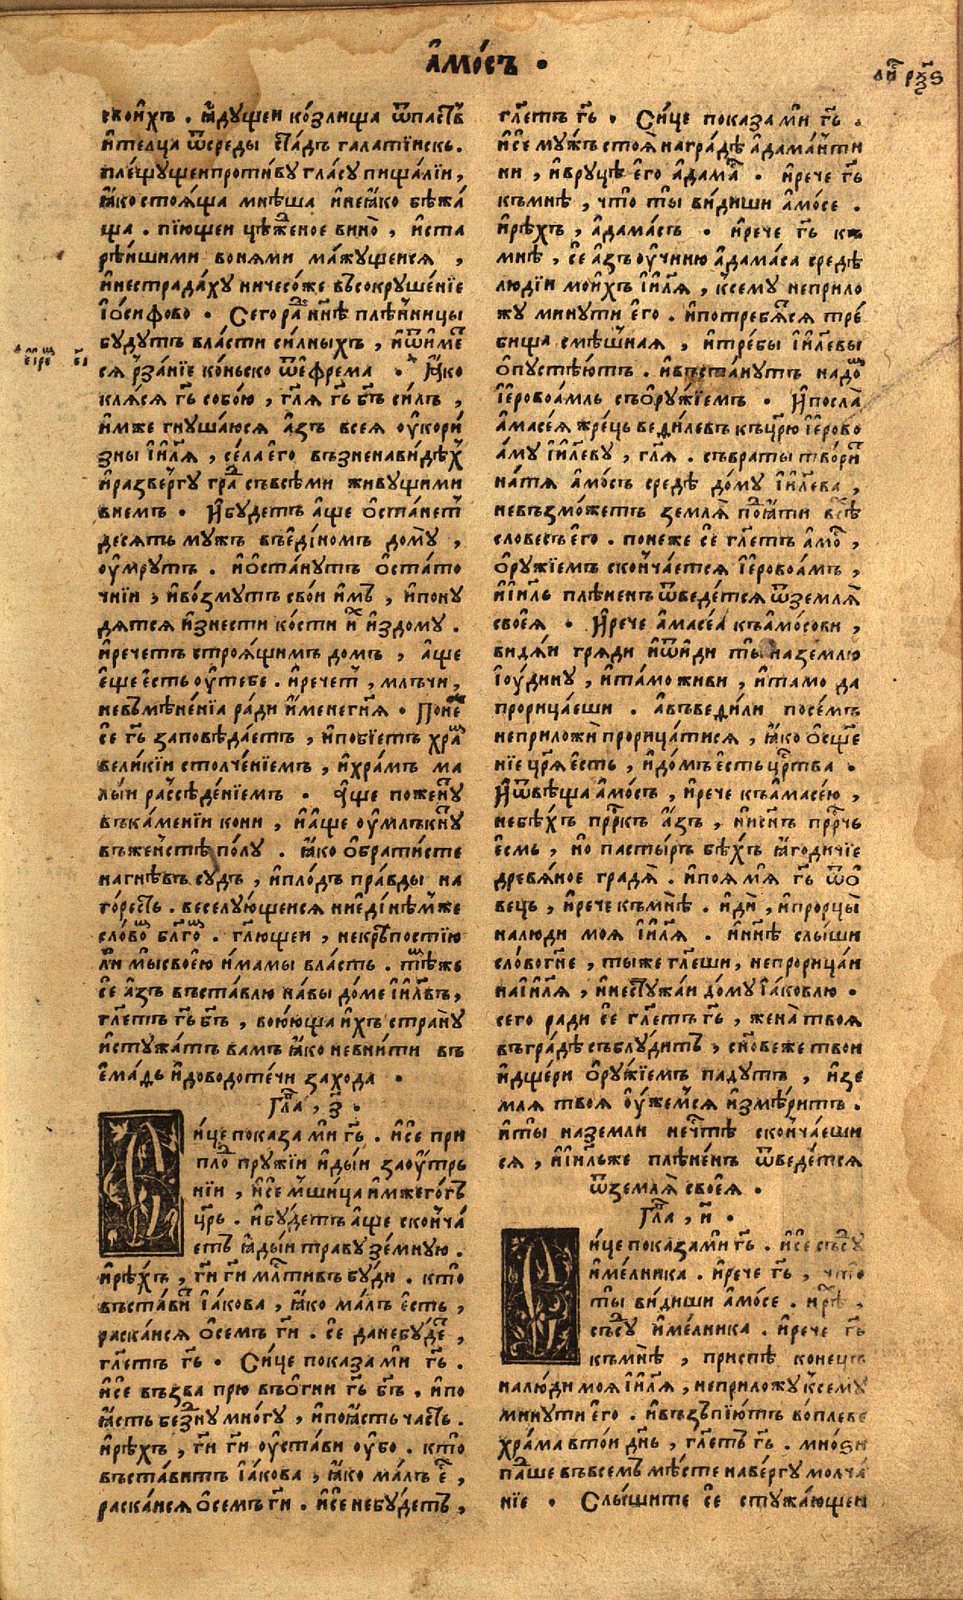 А҆мо́съ .
свои́хъ . ꙗ҆дꙋщеи ко́злища ѿпаствъ
и҆телца ѿсреды ста́дъ галати́искь .
пле́щꙋщеипроти́вꙋ гла́сꙋ пища́лїи ,
ꙗ҆ко стоѧ́ща мнѣ́ша и҆неꙗ҆ко бѣжа́
ща . пїющеи цѣже́ное вино̀ , и҆ста
рѣ́ишими вонѧми ма́жꙋщеисѧ ,
и҆нестрада́хꙋ ничесо́же въсокрꙋше́нїе
І҆о́сифово . Сего ра́ⷣ нн҃ѣ плѣ́нницы
бꙋдꙋтъ вла́сти си́лныхъ , и҆ѿи́меⷮ
сѧ рза́нїе ко́ньско ѿе҆фрема . Ꙗ҆ко
клѧ́сѧ гь҃ собо́ю , гл҃ѧ гь҃ бг҃ъ си́лъ ,
и҆мже гнꙋша́юсѧ а҆зъ всеѧ ᲂу҆кори́
зны і҆и҃лѧ , се́ла е҆го въз̾ненави́дѣхⸯ
и҆разве́ргꙋ граⷣ съвсѣми живꙋщими
внемъ . И҆бꙋдетъ а҆ще ѡ҆ста́нетⸯ
десѧть мꙋжъ въе҆ди́номъ до́мꙋ ,
ᲂу҆мрꙋтъ . и҆ѡ҆ста́нꙋтъ ѡ҆ста́то
чнїи , и҆во́змꙋтъ свои и҆мъ , и҆понꙋ
дѧтсѧ и҆знести ко́сти и҆ⷯ и҆здомꙋ .
и҆речетъ строѧ́щимъ домъ , а҆ще
е҆ще е҆сть ᲂу҆тебе . и҆речетⸯ , млъчи ,
невъмѣне́нїа ра́ди и҆менегнѧ . Поне́ⷤ
се гь҃ заповѣ́даетъ , и҆побїетъ храⷨ
вели́кїи столче́нїемъ , и҆хра́мъ ма
лыи разсѣде́нїемъ . а҆ще поже́нꙋⷮ
въка́менїи кони , и҆а҆ще ᲂу҆млъкнꙋⷮ
въже́нстѣ́ по́лꙋ . ꙗ҆ко ѡ҆брати́сте
нагнѣ́въ сꙋдъ , и҆пло́дъ пра́вды на
го́ресть . веселꙋ́ющеисѧ ниеди́нѣмже
сло́воⷨ благоⷨ . гл҃ющеи , некрѣ́постїю
ли мы свое́ю и́мамы вла́сть . тѣⷨже
се а҆зъ въста́влю на́вы до́ме і҆и҃лвъ ,
гл҃етъ гь҃ бг҃ъ , вою́юща и҆хъ странꙋ
и҆стꙋжа́тъ вамъ ꙗ҆ко невни́ти въ
е҆ма́ѳь и҆доводоте́чи за́хода .
Гла҃ , з҃ .
Си́це показа ми гь҃ . и҆се при
плоⷣ прꙋжїи и҆ды́и заᲂу҆трь
нїи , и҆се мши́ца и҆мжего́гъ
цр҃ь . и҆бꙋ́детъ а҆ще сконча́
етъ ꙗ҆ды́и травꙋ зе́мнꙋю .
и҆рѣ́хъ , гѝ гѝ млⷭ҇тивъ бꙋди . кто̀
въста́виⷮ І҆а́кова , ꙗ҆ко ма́лъ є҆сть ,
раска́исѧ ѡ҆семъ гѝ . се данебꙋ́деⷮ ,
гл҃етъ гь҃ . Си́це показа ми гь҃ .
и҆се възва прю въѻ҆гни гь҃ бг҃ъ . и҆по
ꙗ҆сть безⷣнꙋ мно́гꙋ , и҆поꙗ҆сть ча́сть .
и҆рѣ́хъ , гѝ гѝ ᲂу҆ста́ви ᲂу҆бо . кто̀
въста́витъ І҆а́кова , ꙗ҆ко ма́лъ е҆ⷭ ,
раска́исѧ ѡ҆семъ гѝ . и҆се небꙋ́детъ ,
гл҃етъ гь҃ . Си́це показа ми гь҃ .
и҆се мꙋ́жъ стоѧ̀ награ́дѣ а҆дама́нти
ни , и҆врꙋцѣ е҆го а҆дамаⷭ . и҆рече гь҃
къмнѣ , что̀ ты ви́диши а҆мо́се .
и҆рѣ́хъ , а҆дама́съ . и҆рече гь҃ къ
мнѣ , се а҆зъ ᲂу҆чиню а҆дама́са средѣ
люді́и мои́хъ і҆и҃лѧ , ксемꙋ неприло
жꙋ минꙋти е҆го . и҆потребѧ́тсѧ тре́
бища смѣшнаѧ , и҆тре́бы і҆и҃левы
ѡ҆пꙋстѣ́ютъ . и҆въста́нꙋтъ надоⷨ
І҆еровоа́мль съѻ҆рꙋ́жїемъ . И҆посла̀
а҆масе́ѧ жре́ць веди́левъ къцр҃ю і҆ерово
а́мꙋ і҆и҃левꙋ , гл҃ѧ . съвраты твориⷮ
на́тѧ а҆мо́съ средѣ до́мꙋ і҆и҃лева ,
невъзмо́жетъ землѧ̀ поⷣꙗ҆ти всѣ
словесъ е҆го . понеже се гл҃етъ а҆моⷭ ,
ѻ҆рꙋ́жїемъ сконча́етсѧ І҆еровоа́мъ ,
и҆і҆и҃ль плѣненъ ѿведе́тсѧ ѿземлѧ̀
своеѧ̀ . И҆рече а҆масе́а къа҆мо́сови ,
видѧ́и грѧди и҆ѿиди ты наземлю
І҆ꙋдинꙋ , и҆та́мо живи , и҆тамо да
прорица́еши . а҆въведи́ли посе́мъ
неприложѝ прорица́тисѧ , ꙗ҆ко ѡ҆сще
нїе цр҃ѧ е҆сть , и҆домъ е҆сть црⷭ҇тва .
И҆ѿвѣща а҆мо́съ , и҆рече къа҆масе́ю ,
небѣ́хъ пррⷪ҇къ а҆зъ , нисн҃ъ пррⷪ҇чь
е҆смь , но пасты́ръ бѣ́хъ ꙗ҆годи́чїе
древѧ́ное градѧ̀ . и҆поѧ мѧ гь҃ ѿѻ
вець , и҆рече къмнѣ . и҆дѝ , и҆прорцы̀
налюди моѧ і҆и҃лѧ . и҆нн҃ѣ слы́ши
сло́вогн҃е , тыже гл҃еши , непрорица́и
наі҆и҃лѧ , и҆нестꙋжа́и до́мꙋ І҆а́ковлю .
сего ради се гл҃етъ гь҃ , жена̀ твоѧ
въгра́дѣ съблꙋди́тъ , сн҃овеже твои
и҆дще́ри ѻ҆рꙋ́жїемъ падꙋтъ , и҆зе
млѧ твоѧ ᲂу҆же́мсѧ и҆змѣ́ритъ .
и҆ты̀ наземли нечⷭ҇тѣ сконча́еши
сѧ , и҆і҆и҃льже плѣне́нъ ѿведе́тсѧ
ѿземлѧ̀ своеѧ̀ .
Гла҃ , и҃ .
Си́це показа́ми гь҃ . и҆се съсꙋ́
и҆ме́лника . и҆рече гь҃ , что
ты ви́диши а҆мо́се . и҆рⷯѣ ,
съсꙋ и҆ме́лника . и҆рече гь҃
къмнѣ , приспѣ конець
налю́ди моѧ і҆и҃лѧ , неприложꙋ ксемꙋ
минꙋти е҆го . и҆възъпїю́тъ во́плеве
хра́ма вто́и дн҃ь , гл҃етъ гь҃ . мно́ѕи
паⷣше въвсемъ мѣ́сте набе́ргꙋ молча́
нїе . Слы́шите се стꙋжа́ющеи